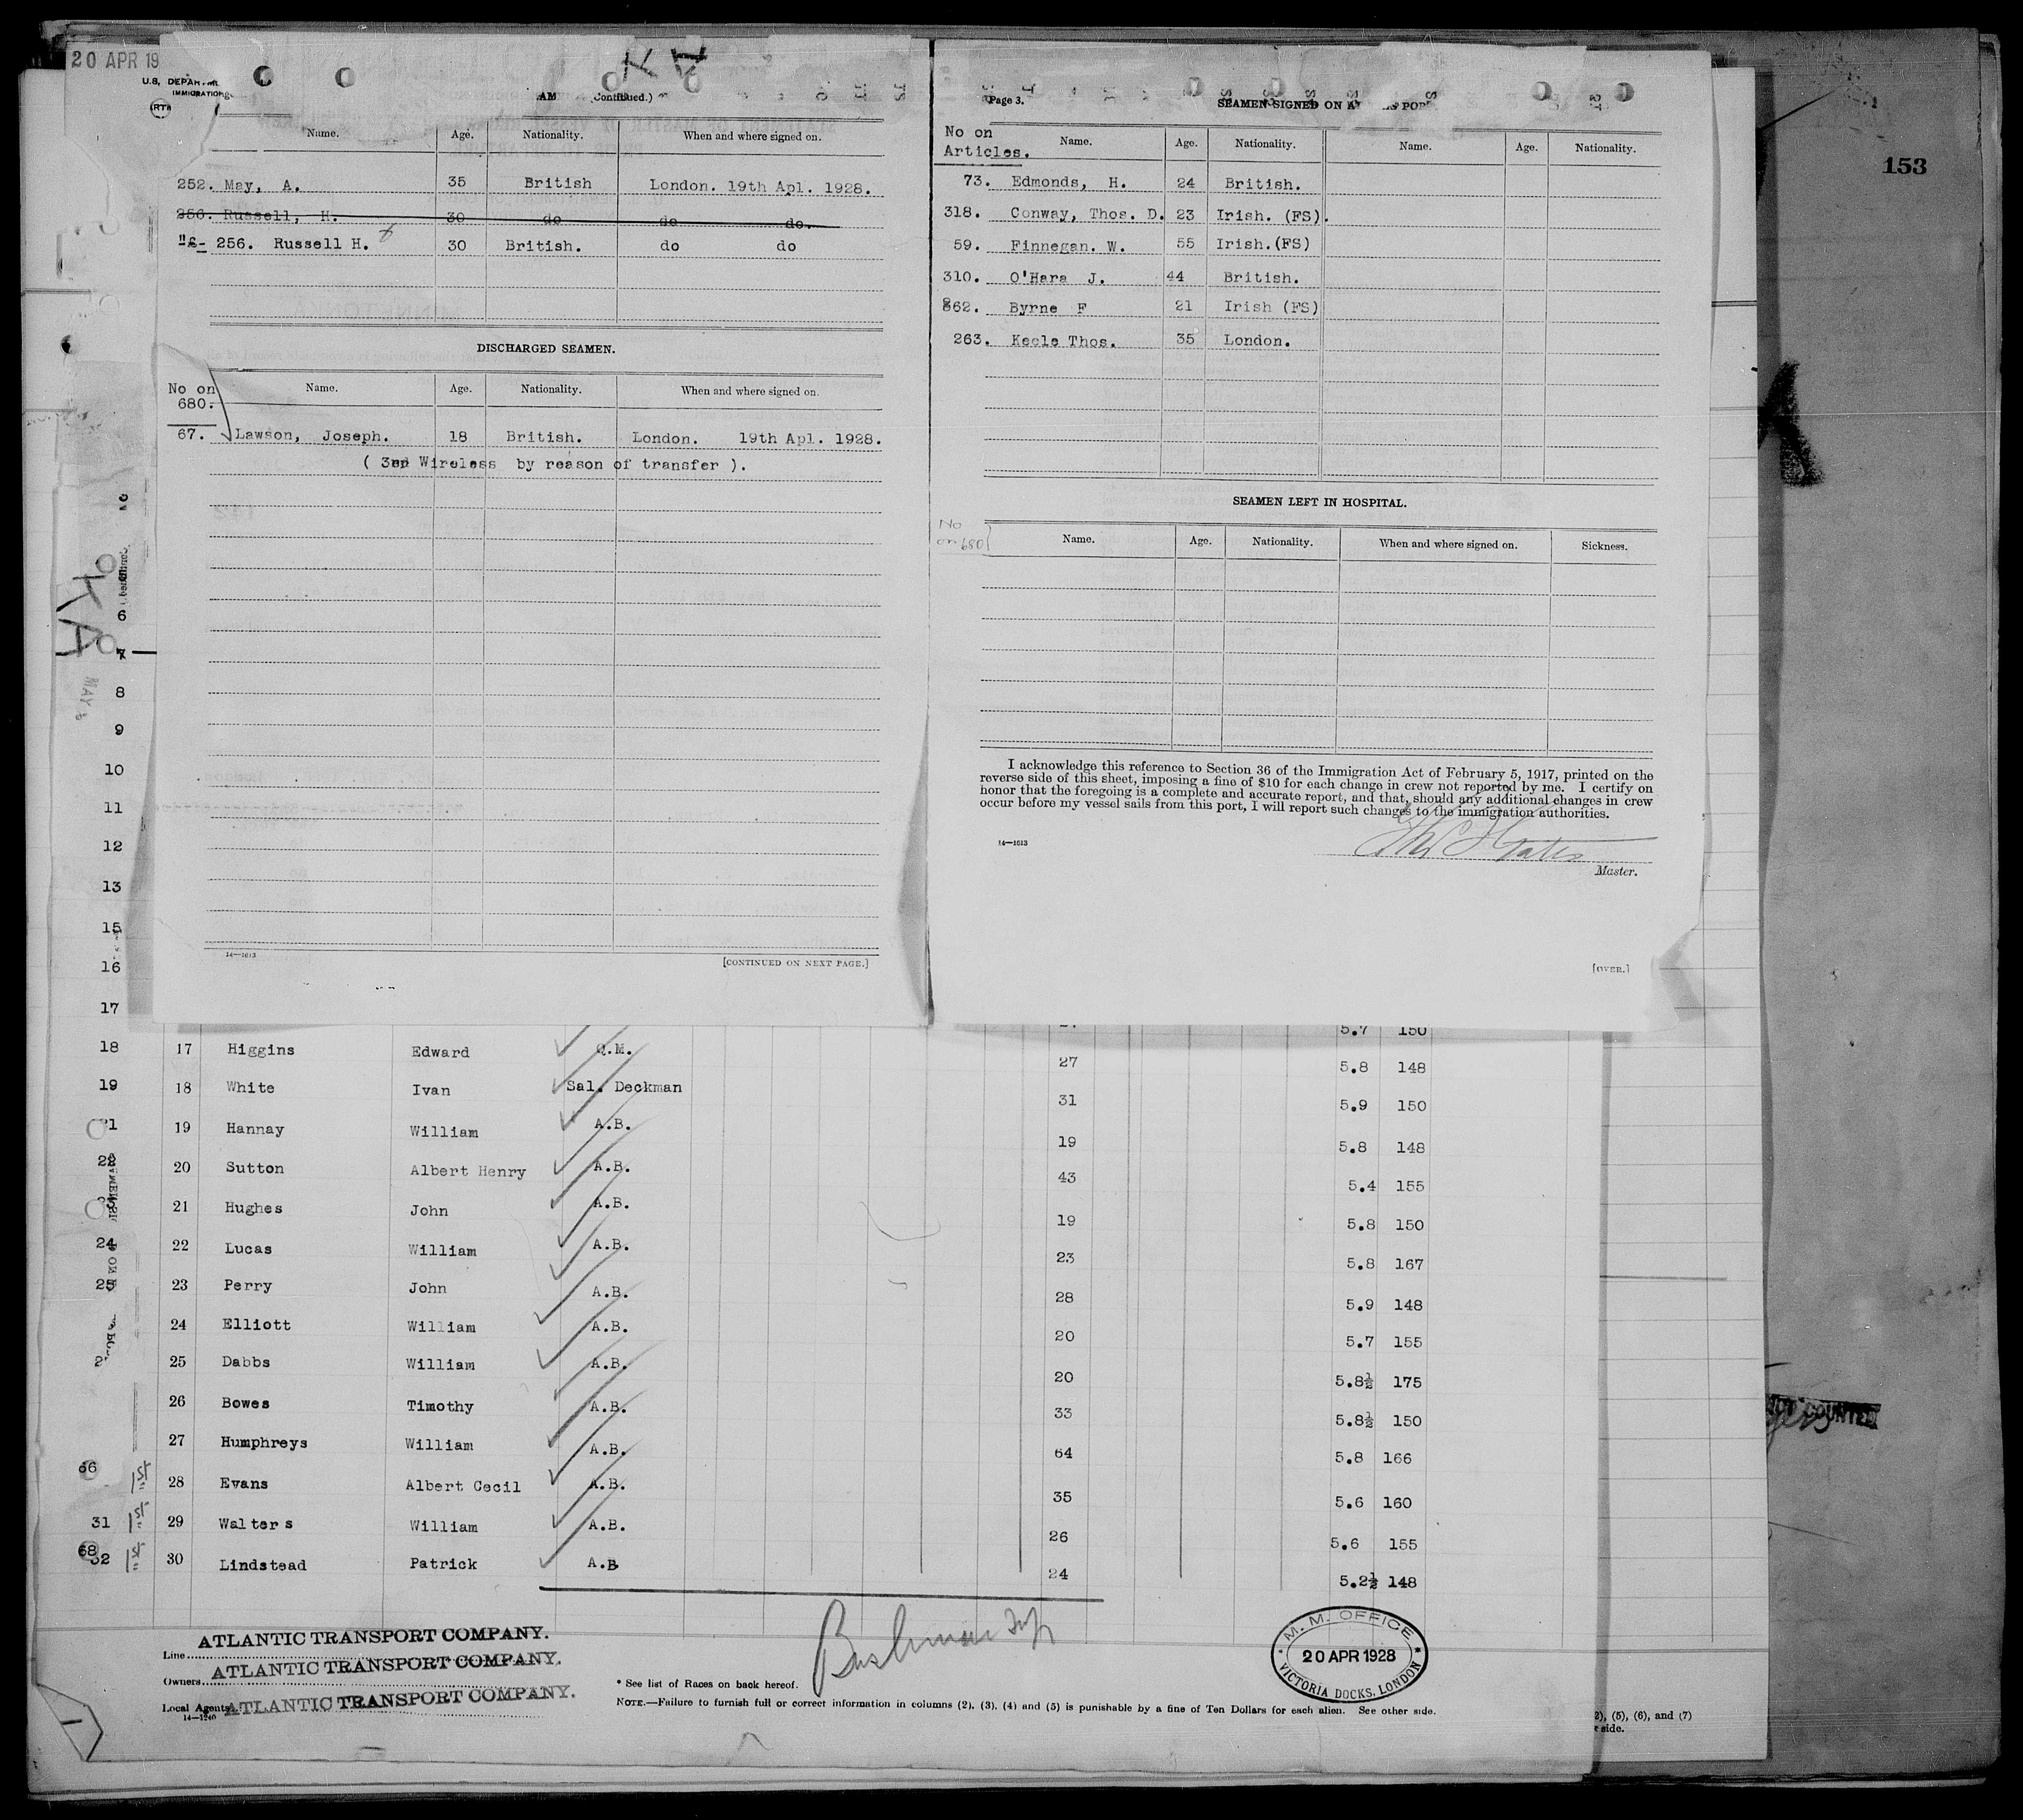 20 APR 19
U.S. DEPAR
IMMIGRATION
Continued.)
Name. Age. Nationality. When and where signed on.
252. May, A. 35 British London. 19th Apl. 1928.
256. Russell, H. 30 do do do.
256. Russell H. 30 British. do do
DISCHARGED SEAMEN.
No on 680. Name. Age. Nationality. When and where signed on.
67. Lawson, Joseph. 18 British. London. 19th Apl. 1928.
( 3rd Wireless by reason of transfer ).
14—1613
[CONTINUED ON NEXT PAGE.]
Page 3.
SEAMEN SIGNED ON AT POR
No on Articles. Name. Age. Nationality. Name. Age. Nationality.
73. Edmonds, H. 24 British.
318. Conway, Thos. D. 23 Irish. (FS).
59. Finnegan. W. 55 Irish.(FS)
310. O'Hara J. 44 British.
862. Byrne F 21 Irish (FS)
263. Keele Thos. 35 London.
SEAMEN LEFT IN HOSPITAL.
No on 680 Name. Age. Nationality. When and where signed on. Sickness.
I acknowledge this reference to Section 36 of the Immigration Act of February 5, 1917, printed on the
reverse side of this sheet, imposing a fine of $10 for each change in crew not reported by me. I certify on
honor that the foregoing is a complete and accurate report, and that, should any additional changes in crew
occur before my vessel sails from this port, I will report such changes to the immigration authorities.
14—1613
Master.
[OVER.]
153
6
7
8
9
10
11
12
13
15
16
17
5.7 150
18 17 Higgins Edward Q.M. 27 5.8 148
19 18 White Ivan Sal. Deckman 31 5.9 150
21 19 Hannay William A.B. 19 5.8 148
22 20 Sutton Albert Henry A.B. 43 5.4 155
21 Hughes John A.B. 19 5.8 150
24 22 Lucas William A.B. 23 5.8 167
25 23 Perry John A.B. 28 5.9 148
24 Elliott William A.B. 20 5.7 155
25 Dabbs William A.B. 20 5.8½ 175
26 Bowes Timothy A.B. 33 5.8½ 150
27 Humphreys William A.B. 64 5.8 166
66 1st 28 Evans Albert Cecil A.B. 35 5.6 160
31 1st 29 Walters William A.B. 26 5.6 155
68 32 1st 30 Lindstead Patrick A.B 24 5.2½ 148
Line ATLANTIC TRANSPORT COMPANY.
Owners ATLANTIC TRANSPORT COMPANY.
Local Agents ATLANTIC TRANSPORT COMPANY.
14—1240
* See list of Races on back hereof.
NOTE.—Failure to furnish full or correct information in columns (2), (3), (4) and (5) is punishable by a fine of Ten Dollars for each alien. See other side.
M. M. OFFICE
20 APR 1928
VICTORIA DOCKS, LONDON
2), (5), (6), and (7)
side.